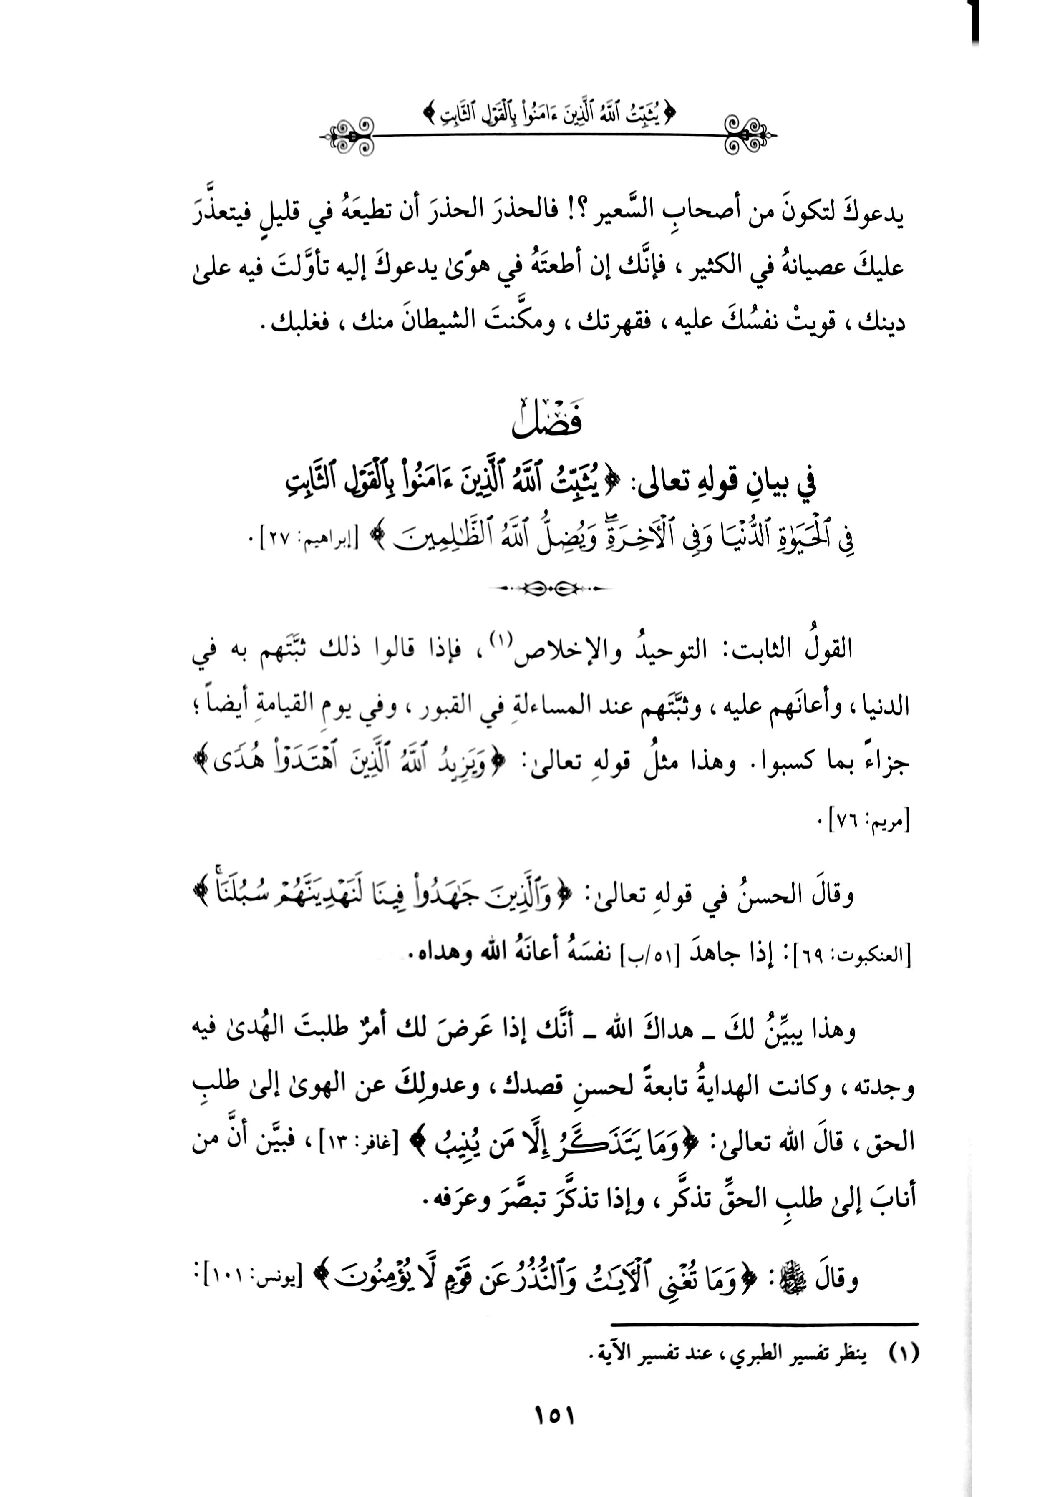 ﴿ يُثَبِّتُ ٱللَّهُ ٱلَّذِينَ ءَامَنُوا۟ بِٱلْقَوْلِ ٱلثَّابِتِ ﴾
يدعوكَ لتكونَ من أصحابِ السَّعير ؟! فالحذرَ الحذرَ أن تطيعَهُ في قليلٍ فيتعذَّرَ
عليكَ عصيانهُ في الكثير ، فإنَّك إن أطعتَهُ في هوًىٰ يدعوكَ إليه تأوَّلتَ فيه علىٰ
دينك ، قويتْ نفسُكَ عليه ، فقهرتك ، ومكَّنتَ الشيطانَ منك ، فغلبك .
فَصْلٌ
في بيانِ قولهِ تعالى: ﴿ يُثَبِّتُ ٱللَّهُ ٱلَّذِينَ ءَامَنُوا۟ بِٱلْقَوْلِ ٱلثَّابِتِ
فِى ٱلْحَيَوٰةِ ٱلدُّنْيَا وَفِى ٱلْأَخِرَةِ ۖ وَيُضِلُّ ٱللَّهُ ٱلظَّٰلِمِينَ ﴾ [إبراهيم: ٢٧] .
القولُ الثابت: التوحيدُ والإخلاص(١) ، فإذا قالوا ذلك ثبَّتَهم به في
الدنيا ، وأعانَهم عليه ، وثبَّتَهم عند المساءلةِ في القبور ، وفي يومِ القيامةِ أيضاً ؛
جزاءً بما كسبوا . وهذا مثلُ قولهِ تعالىٰ: ﴿ وَيَزِيدُ ٱللَّهُ ٱلَّذِينَ ٱهْتَدَوْا۟ هُدًى ﴾
[مريم: ٧٦] .
وقالَ الحسنُ في قولهِ تعالىٰ: ﴿ وَٱلَّذِينَ جَٰهَدُوا۟ فِينَا لَنَهْدِيَنَّهُمْ سُبُلَنَا ۚ ﴾
[العنكبوت: ٦٩]: إذا جاهدَ [٥١/ب] نفسَهُ أعانَهُ الله وهداه .
وهذا يبيِّنُ لكَ ـ هداكَ الله ـ أنَّك إذا عَرضَ لك أمرٌ طلبتَ الهُدىٰ فيه
وجدته ، وكانت الهدايةُ تابعةً لحسنِ قصدك ، وعدولِكَ عن الهوىٰ إلىٰ طلبِ
الحق ، قالَ الله تعالىٰ: ﴿ وَمَا يَتَذَكَّرُ إِلَّا مَن يُنِيبُ ﴾ [غافر: ١٣] ، فبيَّن أنَّ من
أنابَ إلىٰ طلبِ الحقِّ تذكَّر ، وإذا تذكَّرَ تبصَّرَ وعرَفه .
وقالَ ﷻ: ﴿ وَمَا تُغْنِى ٱلْأَيَٰتُ وَٱلنُّذُرُ عَن قَوْمٍ لَّا يُؤْمِنُونَ ﴾ [يونس: ١٠١]:
(١) ينظر تفسير الطبري ، عند تفسير الآية .
١٥١